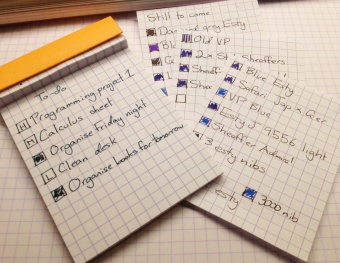 To-do
Programming project 1
Calculus sheet
Organise friday night
Clean desk
Organise books for tmorrow
Still to come:
grey Esty
Old VP
2x St Sheaffers
Blue Esty
Safari Jap x Ger
VP Blue
Esty J 9556 light
Sheaffer Admiral
3 esty nibs
esty 3000 nib